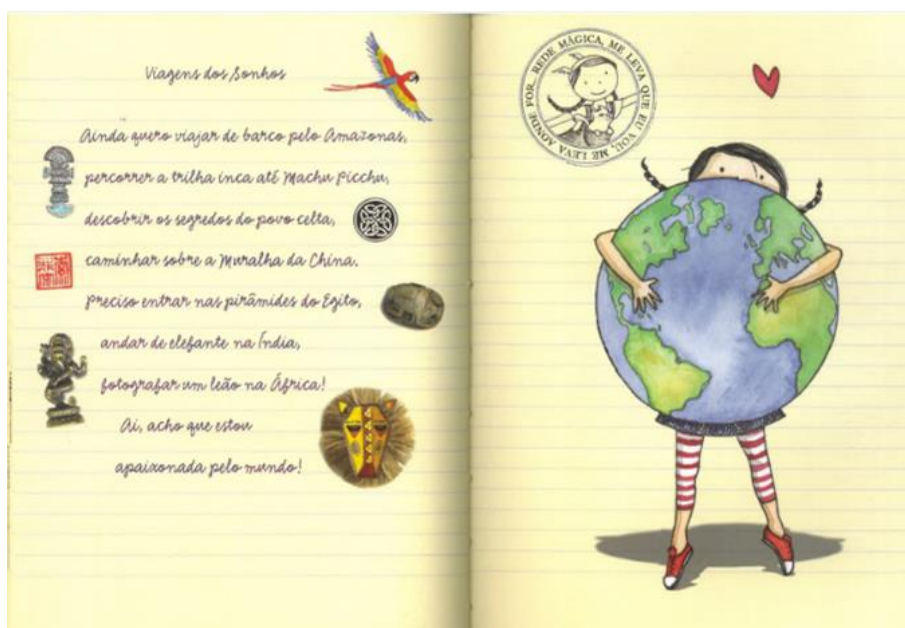 Viagens dos Sonhos
Ainda quero viajar de barco pelo Amazonas,
percorrer a trilha inca até Machu Picchu,
descobrir os segredos do povo celta,
caminhar sobre a Muralha da China.
Preciso entrar nas pirâmides do Egito,
andar de elefante na Índia,
fotografar um leão na África!
Ai, acho que estou
apaixonada pelo mundo!
REDE MÁGICA, ME LEVA QUE EU VOU, ME LEVA AONDE FOR...